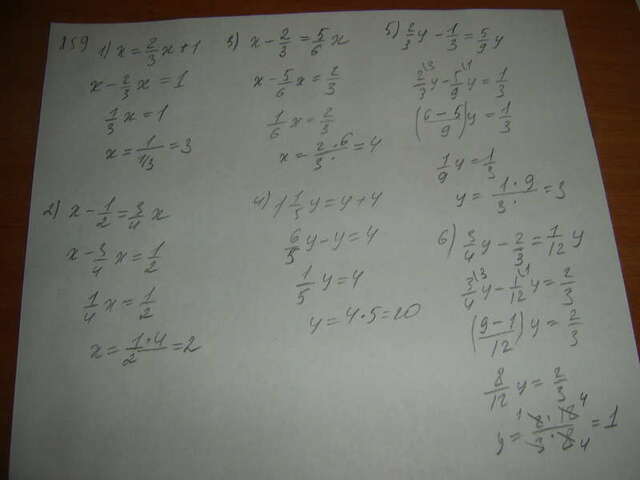 859
1) x = 2/3 x + 1
x - 2/3 x = 1
1/3 x = 1
x = 1/(1/3) = 3
2) x - 1/2 = 3/4 x
x - 3/4 x = 1/2
1/4 x = 1/2
x = (1·4)/2 = 2
3) x - 2/3 = 5/6 x
x - 5/6 x = 2/3
1/6 x = 2/3
x = (2·6)/3 = 4
4) 1 1/5 y = y + 4
6/5 y - y = 4
1/5 y = 4
y = 4·5 = 20
5) 2/3 y - 1/3 = 5/9 y
2/3 \3 y - 5/9 \1 y = 1/3
((6-5)/9) y = 1/3
1/9 y = 1/3
y = (1·9)/3 = 3
6) 3/4 y - 2/3 = 1/12 y
3/4 \3 y - 1/12 \1 y = 2/3
((9-1)/12) y = 2/3
8/12 y = 2/3